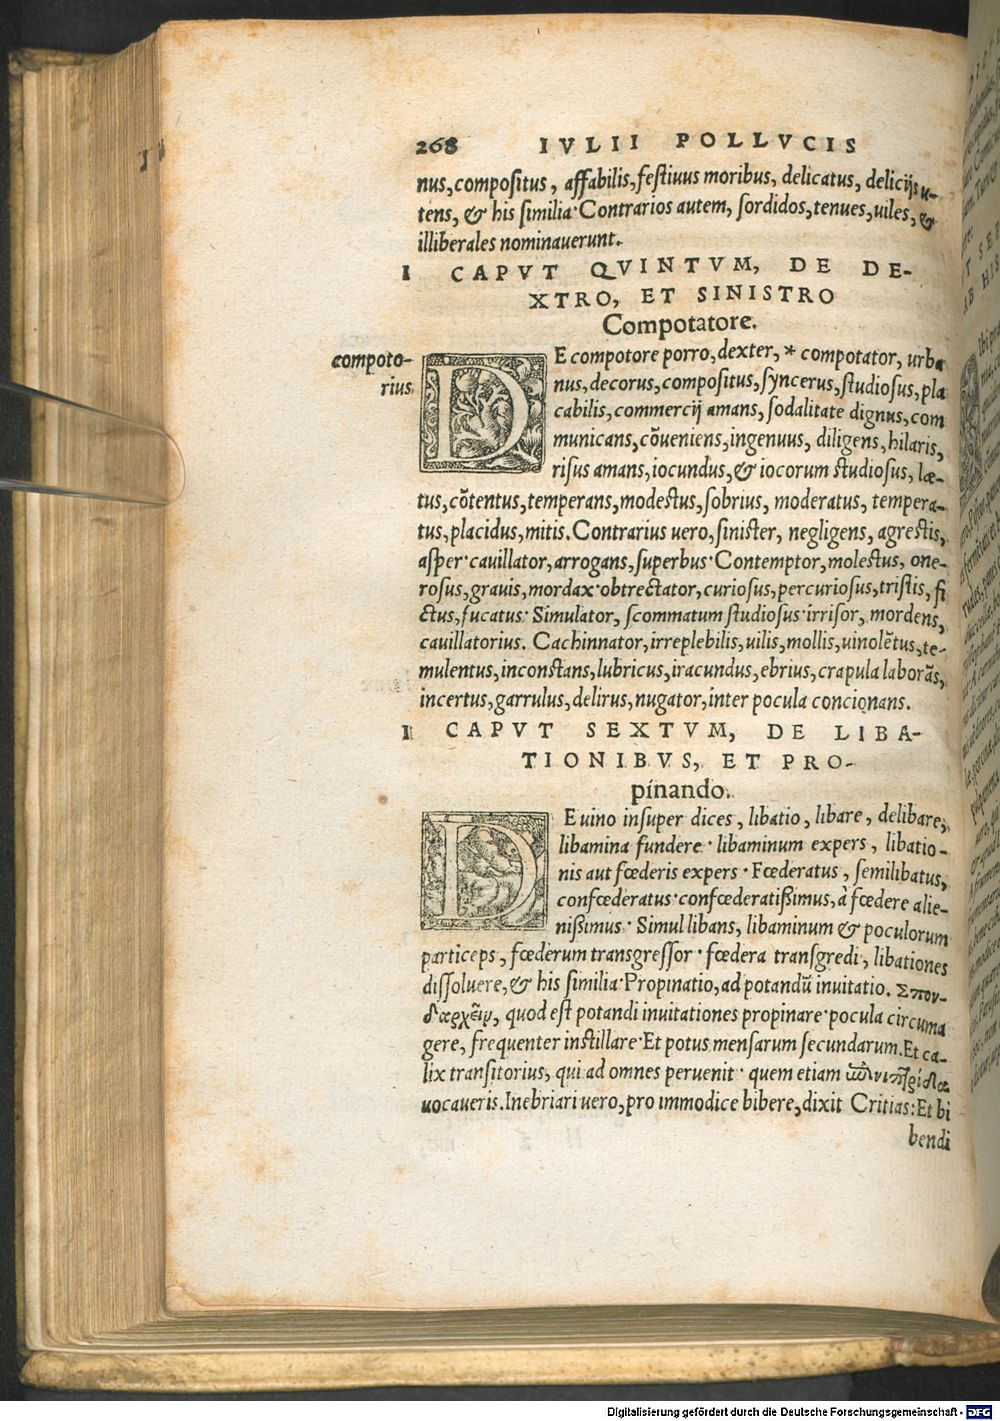 268 IVLII POLLVCIS
nus, compositus, affabilis, festiuus moribus, delicatus, delicijs u-
tens, & his similia· Contrarios autem, sordidos, tenues, uiles, &
illiberales nominauerunt.
I CAPVT QVINTVM, DE DE-
XTRO, ET SINISTRO
Compotatore.
compoto-
rius.
DE compotore porro, dexter, * compotator, urba
nus, decorus, compositus, syncerus, studiosus, pla
cabilis, commercij amans, sodalitate dignus, com
municans, cōueniens, ingenuus, diligens, hilaris,
risus amans, iocundus, & iocorum studiosus, læ-
tus, cōtentus, temperans, modestus, sobrius, moderatus, tempera-
tus, placidus, mitis. Contrarius uero, sinister, negligens, agrestis,
asper· cauillator, arrogans, superbus· Contemptor, molestus, one-
rosus, grauis, mordax· obtrectator, curiosus, percuriosus, tristis, fi
ctus, fucatus· Simulator, scommatum studiosus· irrisor, mordens,
cauillatorius. Cachinnator, irreplebilis, uilis, mollis, uinolētus, te-
mulentus, inconstans, lubricus, iracundus, ebrius, crapula laborās,
incertus, garrulus, delirus, nugator, inter pocula concionans.
I CAPVT SEXTVM, DE LIBA-
TIONIBVS, ET PRO-
pinando.
DE uino insuper dices, libatio, libare, delibare,
libamina fundere· libaminum expers, libatio-
nis aut fœderis expers· Fœderatus, semilibatus,
confœderatus· confœderatißimus, à fœdere alie-
nißimus· Simul libans, libaminum & poculorum
particeps, fœderum transgressor· fœdera transgredi, libationes
dissoluere, & his similia· Propinatio, ad potandū inuitatio. Σπον-
δαρχεῖν, quod est potandi inuitationes propinare· pocula circuma
gere, frequenter instillare· Et potus mensarum secundarum. Et ca-
lix transitorius, qui ad omnes peruenit· quem etiam
uocaueris. Inebriari uero, pro immodice bibere, dixit Critias: Et bi
bendi
Digitalisierung gefördert durch die Deutsche Forschungsgemeinschaft - DFG